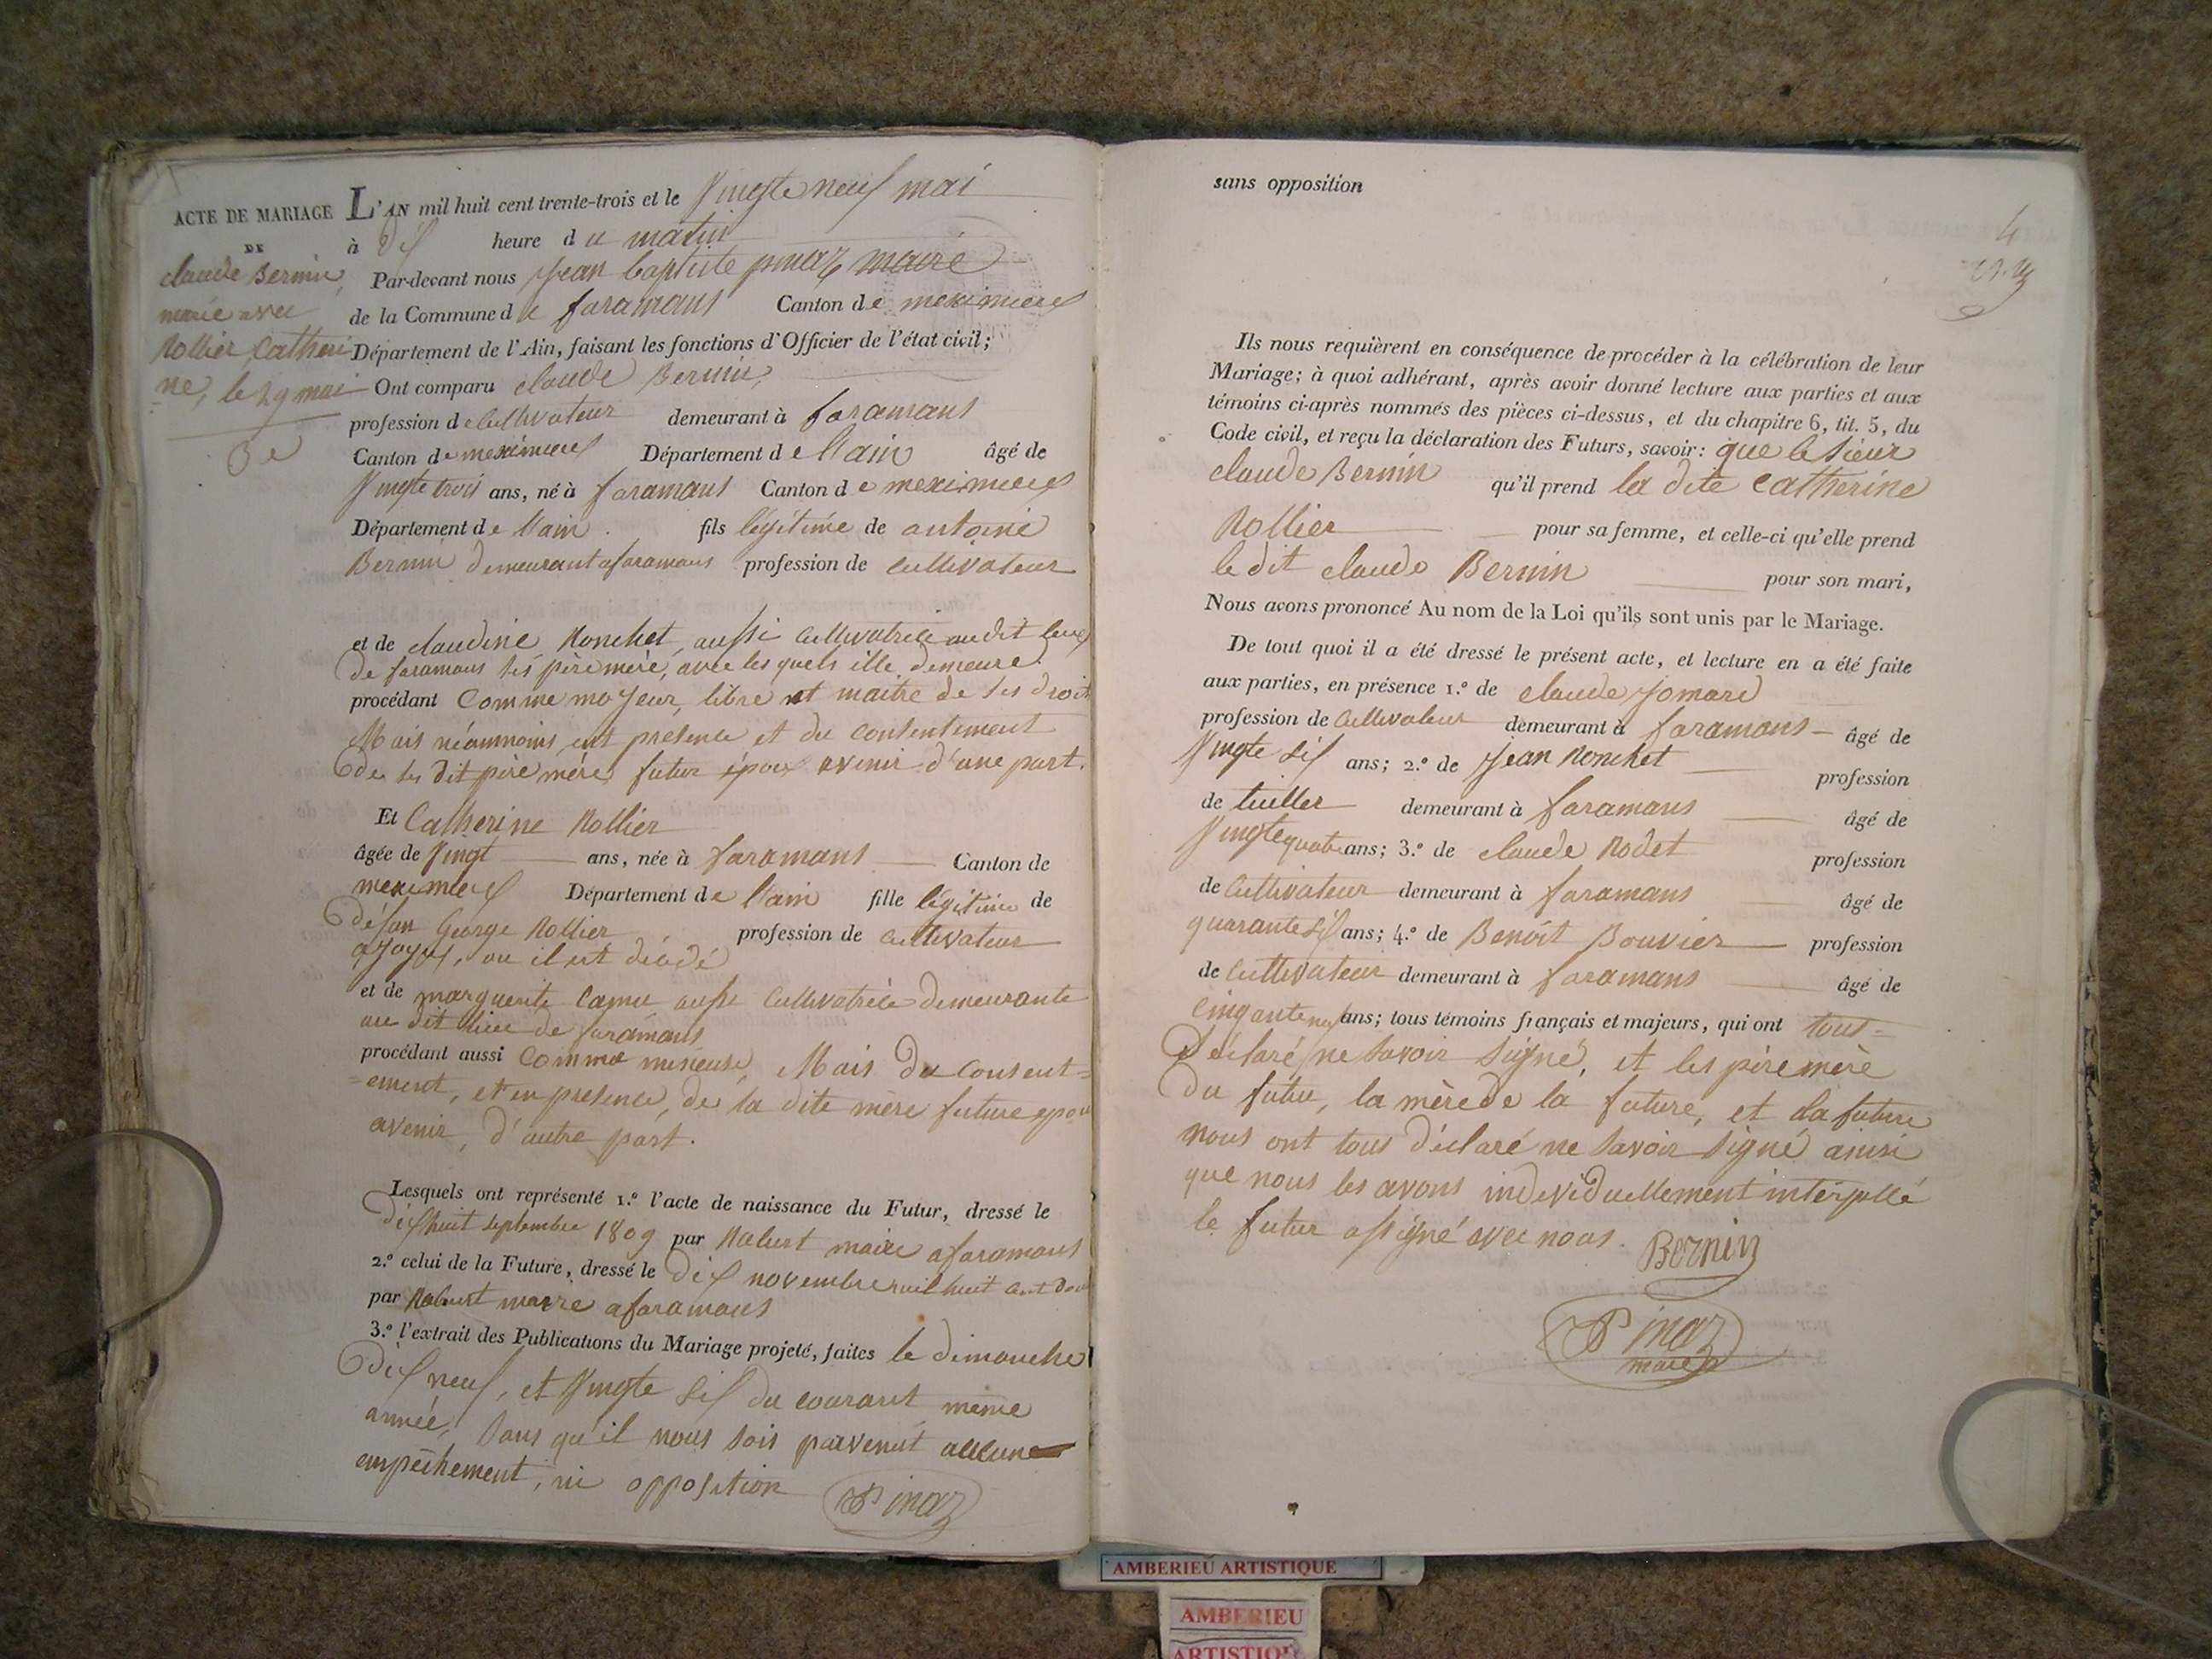 ACTE DE MARIAGE
DE
claude Bernin,
marié avec
Rollier Catheri
ne, le 29 mai
3e
L'AN mil huit cent trente-trois et le Vingte neuf mai
à dix heure du matin
Par-devant nous Jean baptiste pinaz maire
de la Commune de faramans Canton de meximieux
Département de l'Ain, faisant les fonctions d'Officier de l'état civil;
Ont comparu claude Bernin,
profession de Cultivateur demeurant à faramans
Canton de meximieux Département de l'ain âgé de
Vingte trois ans, né à faramans Canton de meximieux
Département de l'ain fils légitime de antoine
Bernin demeurant a faramans profession de Cultivateur
et de claudine Ronchet, aussi Cultivatrice au dit lieux
de faramans ses père mère, avec les quels ille demeure.
procédant Comme mayeur, libre et maitre de ses droit
Mais néanmoins ent presence et du consentement
de ses dit père mére futur époux avenir d'une part.
Et Catherine Rollier
âgée de Vingt ans, née à faramans Canton de
meximieux Département de l'ain fille légitime de
défun George Rollier profession de Cultivateur
a Joyeux, ou il est décédé
et de marguerite Camu aussi Cultivatrice demeurante
au dit lieu de faramans
procédant aussi Comme mineuse, Mais du Consent=
=ement, et en presence, de la dite mère future epou
avenir, d'autre part.
Lesquels ont représenté 1.º l'acte de naissance du Futur, dressé le
dix huit septembre 1809 par maire a faramans
2.º celui de la Future, dressé le dix novembre mil huit cent dou
par maire a faramans
3.º l'extrait des Publications du Mariage projeté, faites le dimanche
dix neuf, et Vingte six du courant même
année, sans qu'il nous sois parvenut aucune
empêchement, ni opposition Pinaz
sans opposition
4
Ils nous requièrent en conséquence de procéder à la célébration de leur
Mariage; à quoi adhérant, après avoir donné lecture aux parties et aux
témoins ci-après nommés des pièces ci-dessus, et du chapitre 6, tit. 5, du
Code civil, et reçu la déclaration des Futurs, savoir: que le sieur
claude Bernin qu'il prend la dite Catherine
Rollier pour sa femme, et celle-ci qu'elle prend
le dit claude Bernin pour son mari,
Nous avons prononcé Au nom de la Loi qu'ils sont unis par le Mariage.
De tout quoi il a été dressé le présent acte, et lecture en a été faite
aux parties, en présence 1.º de claude Jomard
profession de Cultivateur demeurant à faramans âgé de
Vingte six ans; 2.º de Jean Ronchet profession
de tuiller demeurant à faramans âgé de
Vingte quatre ans; 3.º de claude Rodet profession
de Cultivateur demeurant à faramans âgé de
quarante six ans; 4.º de Benoit Bouvier profession
de Cultivateur demeurant à faramans âgé de
Cinqante neuf ans; tous témoins français et majeurs, qui ont tous=
déclaré ne savoir signé, et les père mère
du futur, la mère de la future, et la future
nous ont tous déclaré ne savoir signé ainsi
que nous les avons individuellement interpellé
le futur assigné avec nous. Bernin
Pinaz
maire
AMBERIEU ARTISTIQUE
AMBERIEU
ARTISTIQ